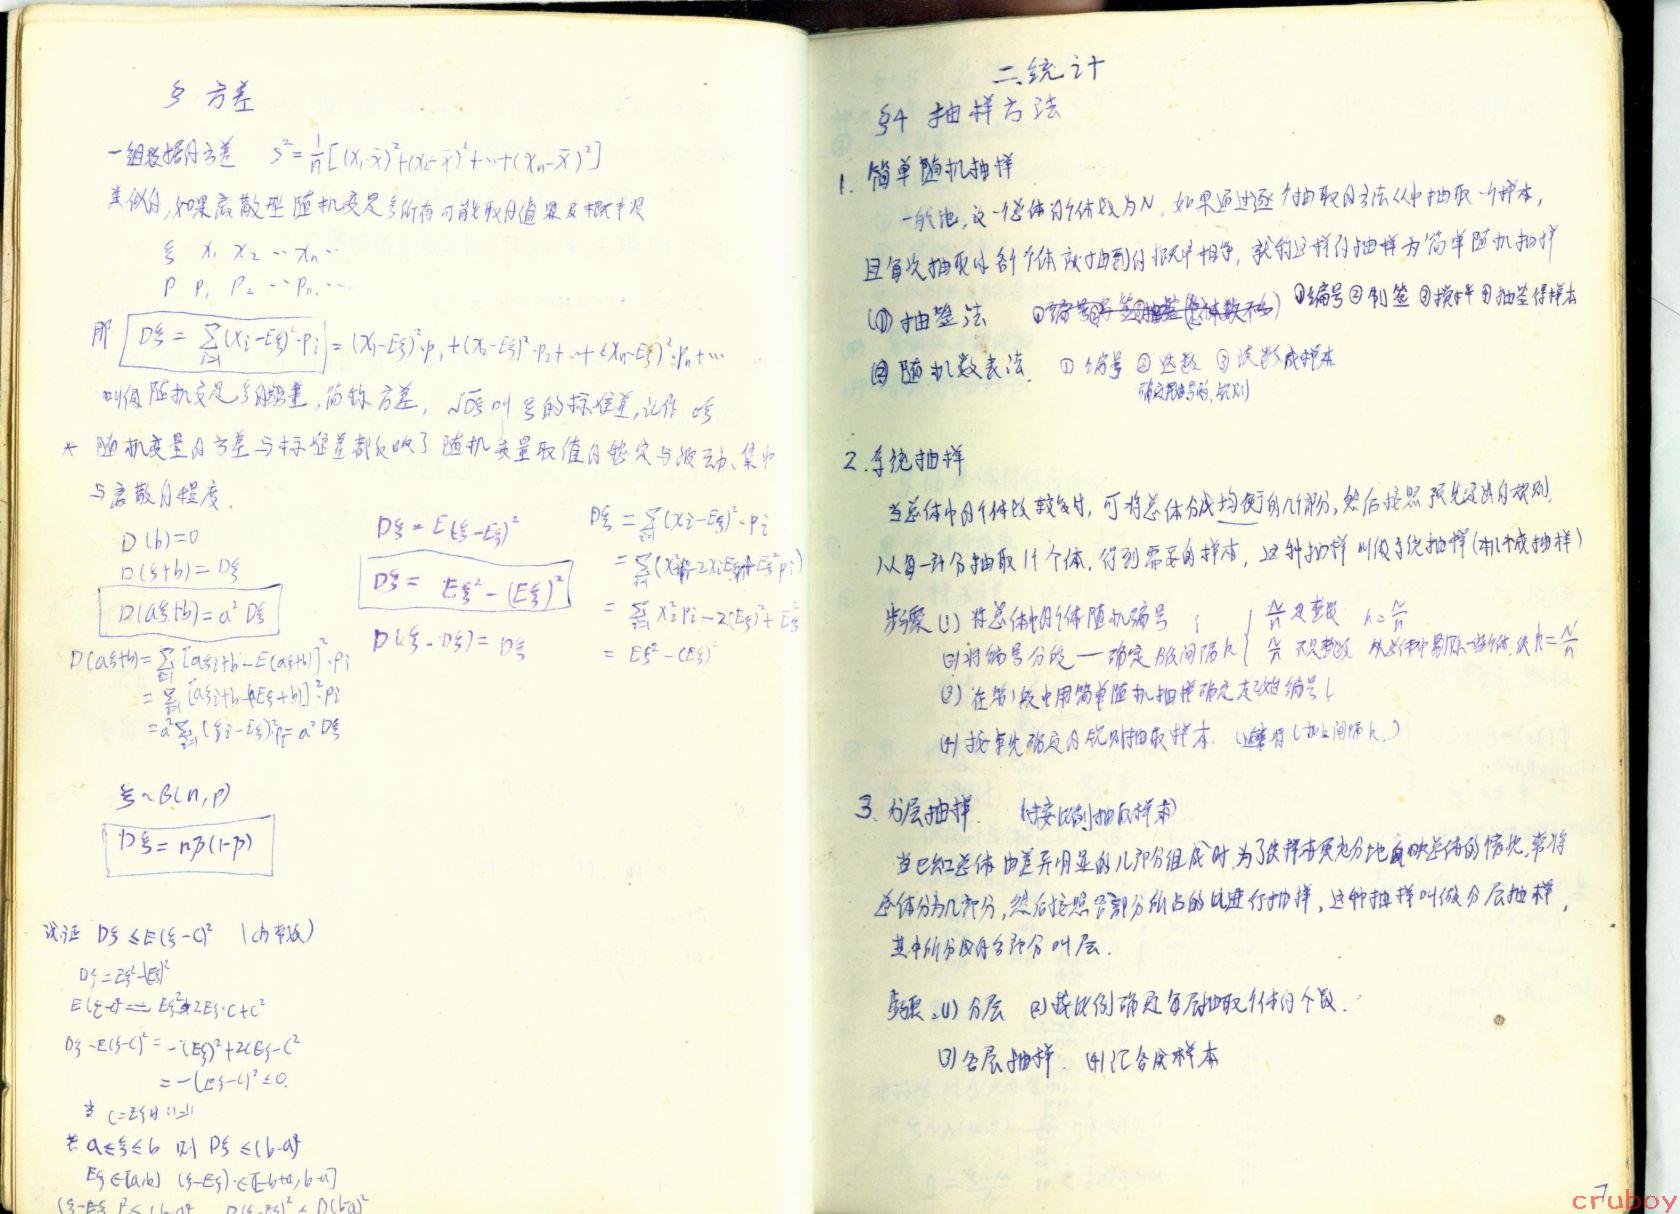 § 方差
一组数据的方差 S²=1/n[(x₁-x̄)²+(x₂-x̄)²+…+(xₙ-x̄)²]
类似的,如果离散型随机变量ξ所有可能取的值是及概率是
ξ x₁ x₂ … xₙ …
P P₁ P₂ … Pₙ …
那 Dξ = Σ(xᵢ-Eξ)²·pᵢ = (x₁-Eξ)²·p₁+(x₂-Eξ)²·p₂+…+(xₙ-Eξ)²·pₙ+…
叫做随机变量ξ的 简称方差, √Dξ叫ξ的标准差,记作σξ
* 随机变量的方差与标准差都反映了随机变量取值的稳定与波动、集中
与离散的程度.
D(b)=0
D(ξ+b)=Dξ
D(aξ+b)=a²Dξ
D(aξ+b)=Σ[aξᵢ+b-E(aξ+b)]²·pᵢ
=Σ[aξᵢ+b-(aEξ+b)]²·pᵢ
=a²Σ(ξᵢ-Eξ)²pᵢ=a²Dξ
Dξ=E(ξ-Eξ)²
Dξ= Eξ²-(Eξ)²
D(ξ-Dξ)=Dξ
Dξ=Σ(xᵢ-Eξ)²·pᵢ
=Σ(xᵢ²pᵢ-2xᵢEξpᵢ+Eξ²pᵢ)
=Σxᵢ²pᵢ-2(Eξ)²+Eξ²
= Eξ²-(Eξ)²
ξ~B(n,p)
Dξ=np(1-p)
试证 Dξ≤E(ξ-C)² (C为常数)
Dξ=Eξ²-(Eξ)²
E(ξ-C)²= Eξ²-2Eξ·C+C²
Dξ-E(ξ-C)²=-(Eξ)²+2CEξ-C²
=-(Eξ-C)²≤0.
当 C=Eξ时"="
若 a≤ξ≤b 则 Dξ≤(b-a)²
Eξ∈[a,b] (ξ-Eξ)∈[-b+a,b-a]
二.统计
§4 抽样方法
1. 简单随机抽样
一般地,设一个总体的个体数为N,如果通过逐个抽取的方法从中抽取一个样本,
且每次抽取时各个个体被抽到的概率相等,就称这样的抽样为简单随机抽样
(1) 抽签法 ①编号②制签③搅拌④抽签得样本
(2) 随机数表法. ①编号 ②选数 ③读数成样本
2. 系统抽样
当总体中的个体数较多时,可将总体分成均衡的几个部分,然后按照预先定出的规则,
从每一部分抽取1个个体,得到需要的样本,这种抽样叫做系统抽样(机械抽样)
步骤 (1) 将总体中的个体随机编号;
(2) 将编号分段—确定分段间隔k { N/n 是整数 k=N/n
N/n 不是整数 从总体中剔除一些个体,使k=N'/n
(3) 在第1段中用简单随机抽样确定起始编号l
(4) 按事先确定的规则抽取样本. (通常将l加上间隔k.)
3. 分层抽样. (按比例抽取样本)
当已知总体由差异明显的几部分组成时,为了使样本更充分地反映总体的情况,常将
总体分为几部分,然后按照各部分所占的比进行抽样,这种抽样叫做分层抽样,
其中所分成的各部分叫层.
步骤:(1) 分层 (2) 按比例确定每层抽取个体的个数.
(3) 各层抽样. (4) 汇合成样本
7
cruboy